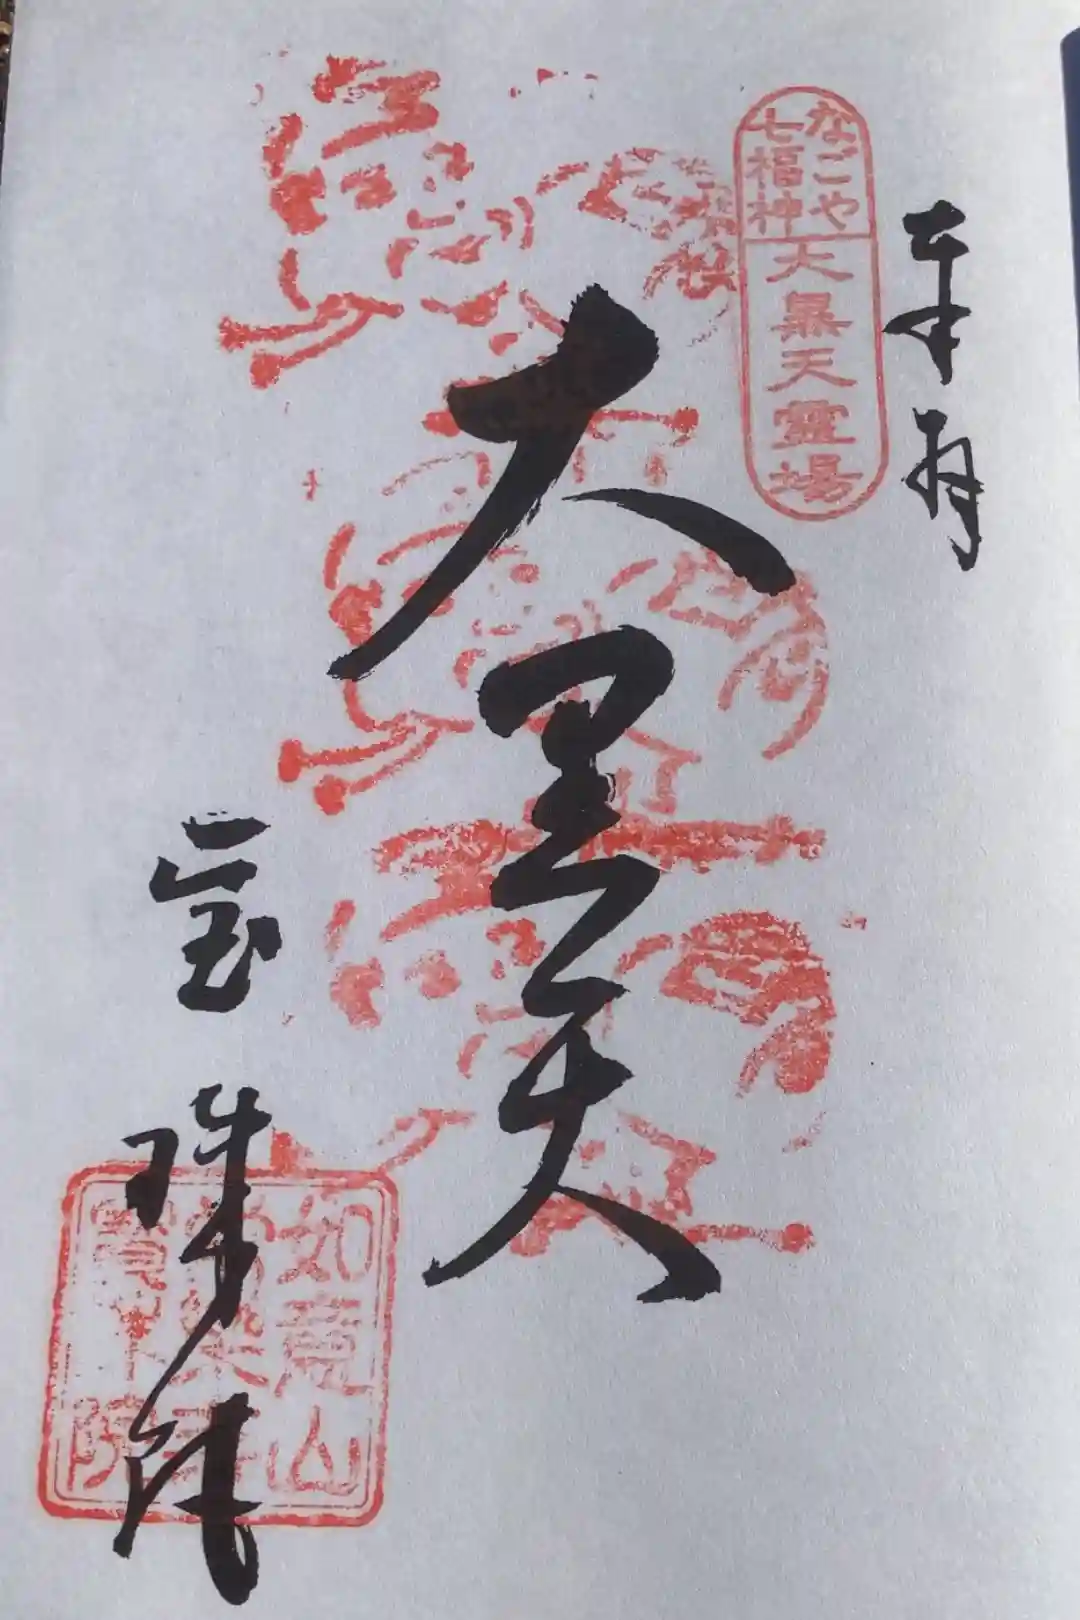 奉拝
なこや
七福神
大黒天霊場
大黒天
宝珠院
如意山
寶珠院